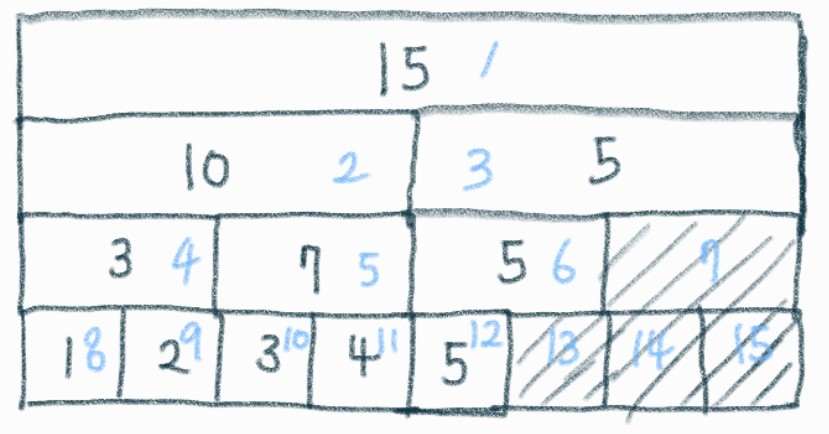 15 1
10 2 3 5
3 4 7 5 5 6 7
1 8 2 9 3 10 4 11 5 12 13 14 15